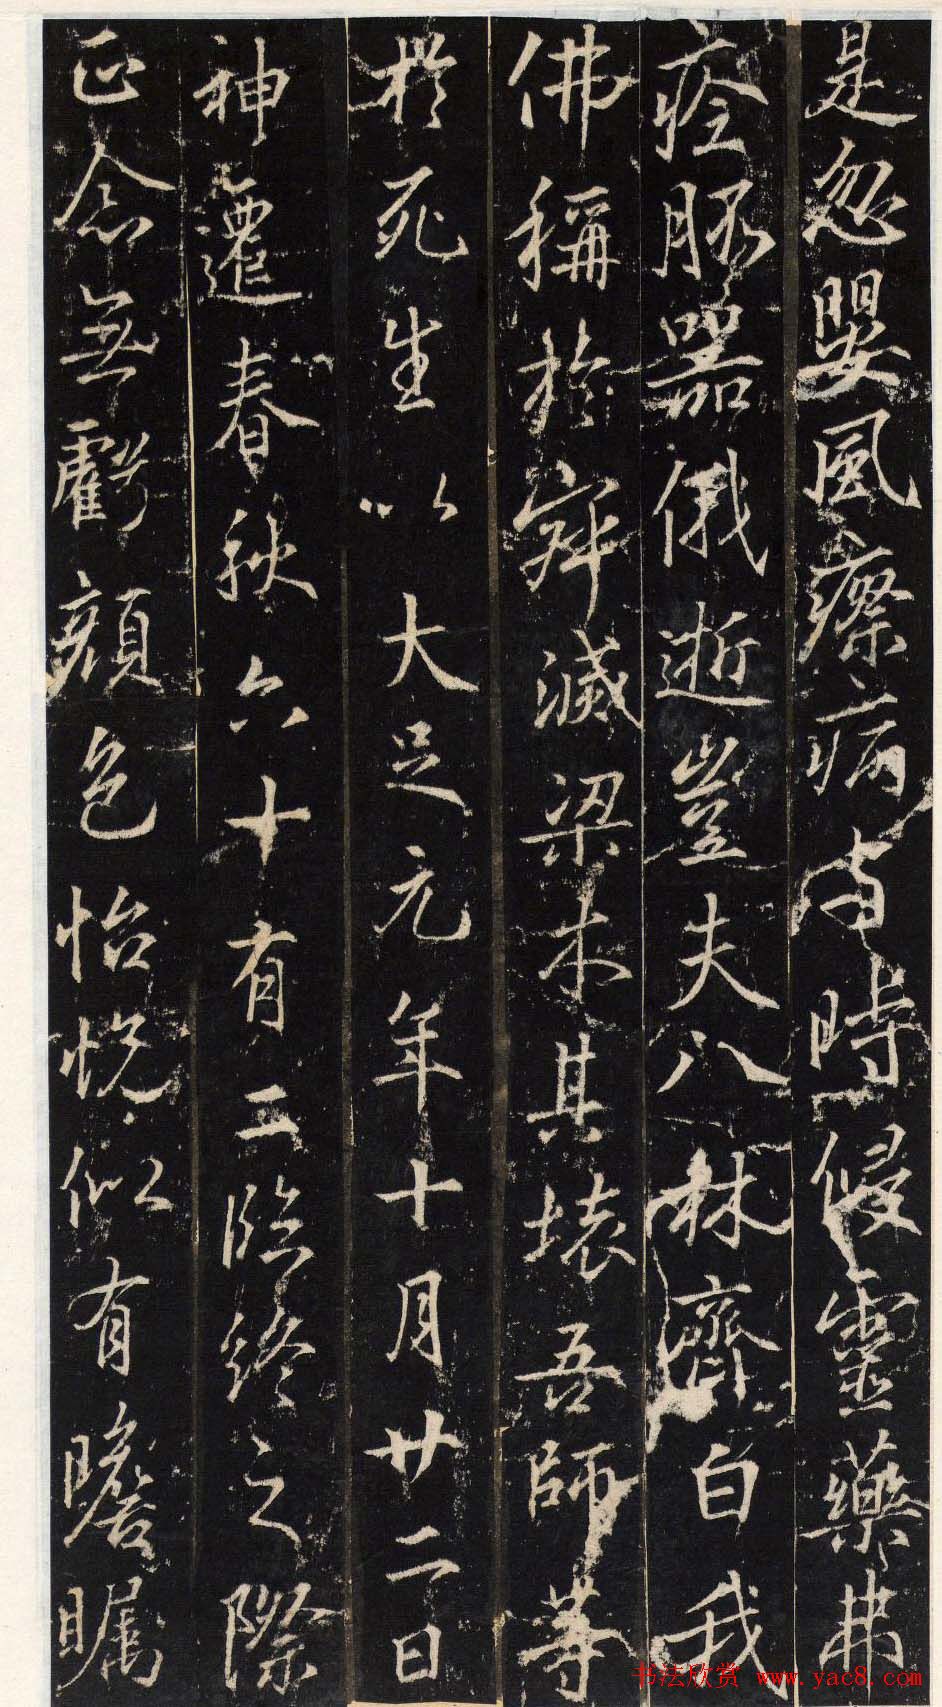 是忽嬰風瘵病与時侵靈藥弗
痊器俄逝豈夫八林齊白我
佛稱於寂滅梁木其壞吾師等
於死生以大足元年十月廿二日
神遷春秋六十有二臨終之際
正念無虧顏色怡悅似有瞻矚
书法欣赏 www.yac8.com